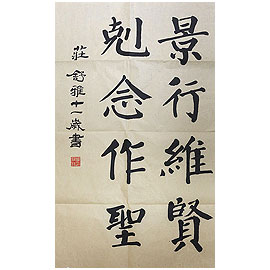 景行維賢
剋念作聖
莊舒雅十一歲書